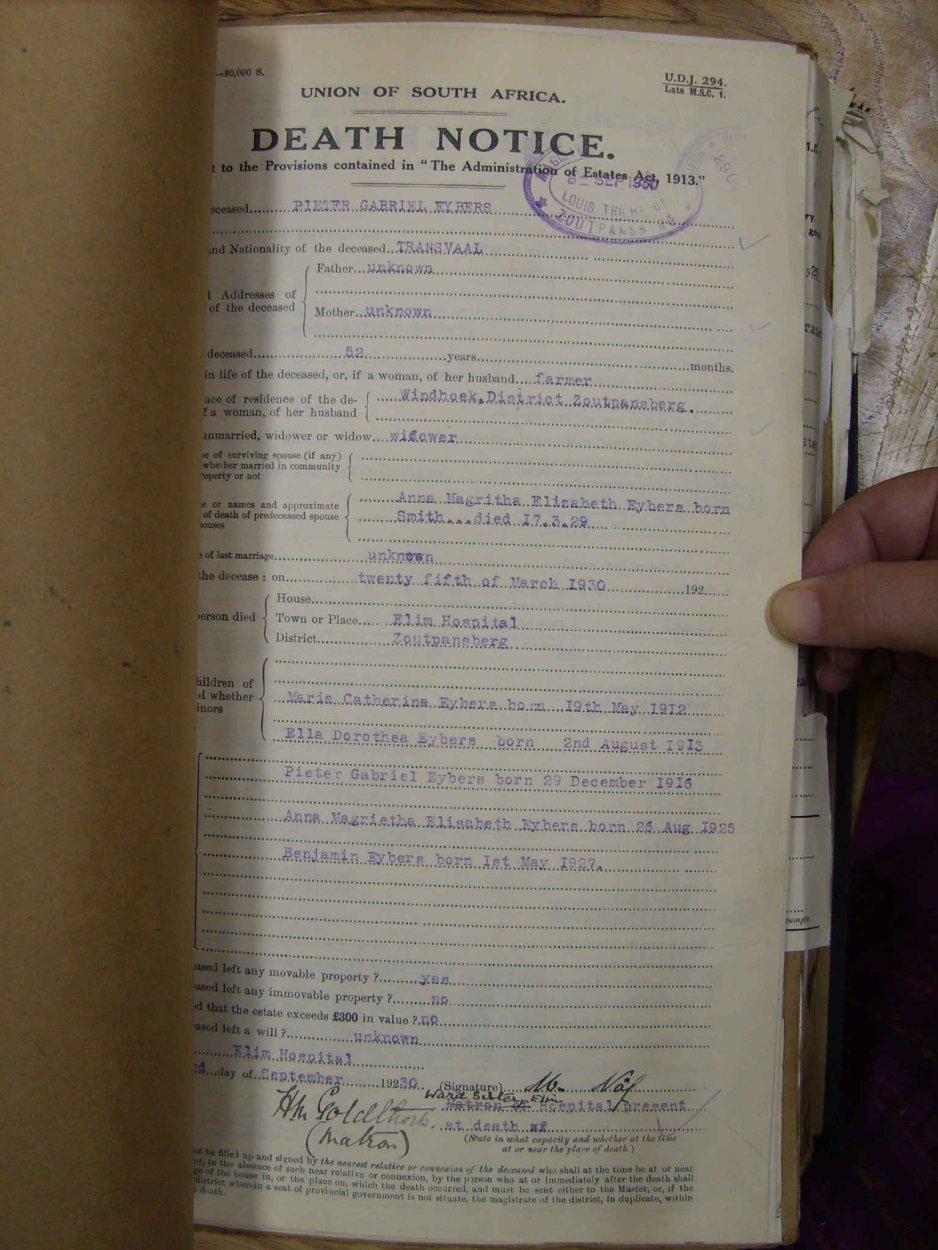 —30,000 S.
U.D.J. 294.
Late M.S.C. 1.
UNION OF SOUTH AFRICA.
DEATH NOTICE.
t to the Provisions contained in "The Administration of Estates Act, 1913."
8 - SEP 1930
LOUIS TRICHARDT
ZOUTPANSB
eceased PIETER GABRIEL EYBERS
and Nationality of the deceased TRANSVAAL
Father unknown
l Addresses of
of the deceased
Mother unknown
deceased 52 years months.
in life of the deceased, or, if a woman, of her husband farmer
ace of residence of the de-
f a woman, of her husband
Windhoek, District Zoutpansberg.
unmarried, widower or widow widower
e of surviving spouse (if any)
whether married in community
roperty or not
e or names and approximate
of death of predeceased spouse
ouses
Anna Magritha Elizabeth Eybers born
Smith...died 17.3.29
e of last marriage unknown
the decease : on twenty fifth of March 1930 192
House
erson died Town or Place Elim Hospital
District Zoutpansberg
hildren of
d whether
inors
Maria Catherina Eybers born 19th May 1912
Ella Dorothea Eybers born 2nd August 1913
Pieter Gabriel Eybers born 29 December 1916
Anna Magrietha Elisabeth Eybers born 26 Aug 1925
Benjamin Eybers born 1st May 1927.
ased left any movable property ? yes
ased left any immovable property ? no
d that the estate exceeds £300 in value ? no
ased left a will ? unknown
Elim Hospital
day of September 19230
(Signature)
Ward Sister, Elim
Matron Hospital present
at death of
(Matron)
(State in what capacity and whether at the time
or near the place of death.)
st be filled up and signed by the nearest relative or connexion of the deceased who shall at the time be at or near
or, in the absence of such near relative or connexion, by the person who at or immediately after the death shall
ge of the house in, or the place on, which the death occurred, and must be sent either to the Master, or, if the
district wherein a seat of provincial government is not situate, the magistrate of the district, in duplicate, within
e death.